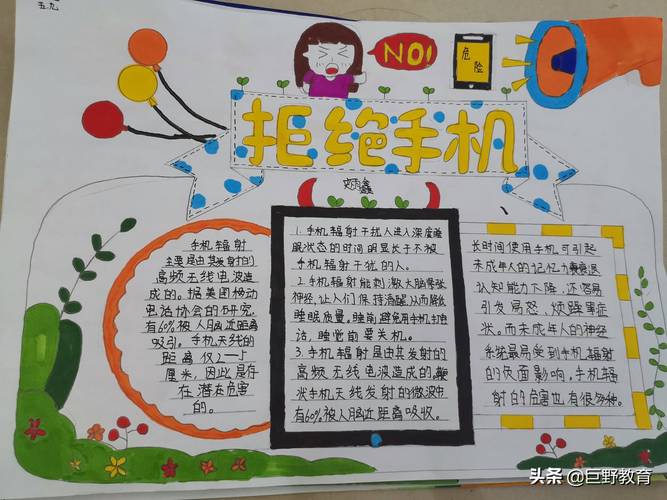 五九
NO!
危险
拒绝手机
手机辐射
主要是由其发射的
高频无线电波造
成的。据美国移动
电话协会的研究,
有60%被人脑近距离
吸引。手机天线的
距离仅2—5
厘米,因此是存
在潜在危害
的。
1.手机辐射干扰人进入深度睡
眠状态的时间明显长于不被
手机辐射干扰的人。
2.手机辐射能刺激大脑紧张
神经,让人们保持清醒,从而降低
睡眠质量。睡前避免用手机打电
话,睡觉前要关机。
3.手机辐射是由其发射的
高频无线电波造成的。鞭
状手机天线发射的微波中
有60%被人脑近距离吸收。
长时间使用手机可引起
未成年人的记忆力衰退
认知能力下降,还容易
引发焦虑、烦躁等症
状。而未成年人的神经
系统最易受到手机辐射
的负面影响,手机辐
射的危害也有很多种。
头条 @巨野教育